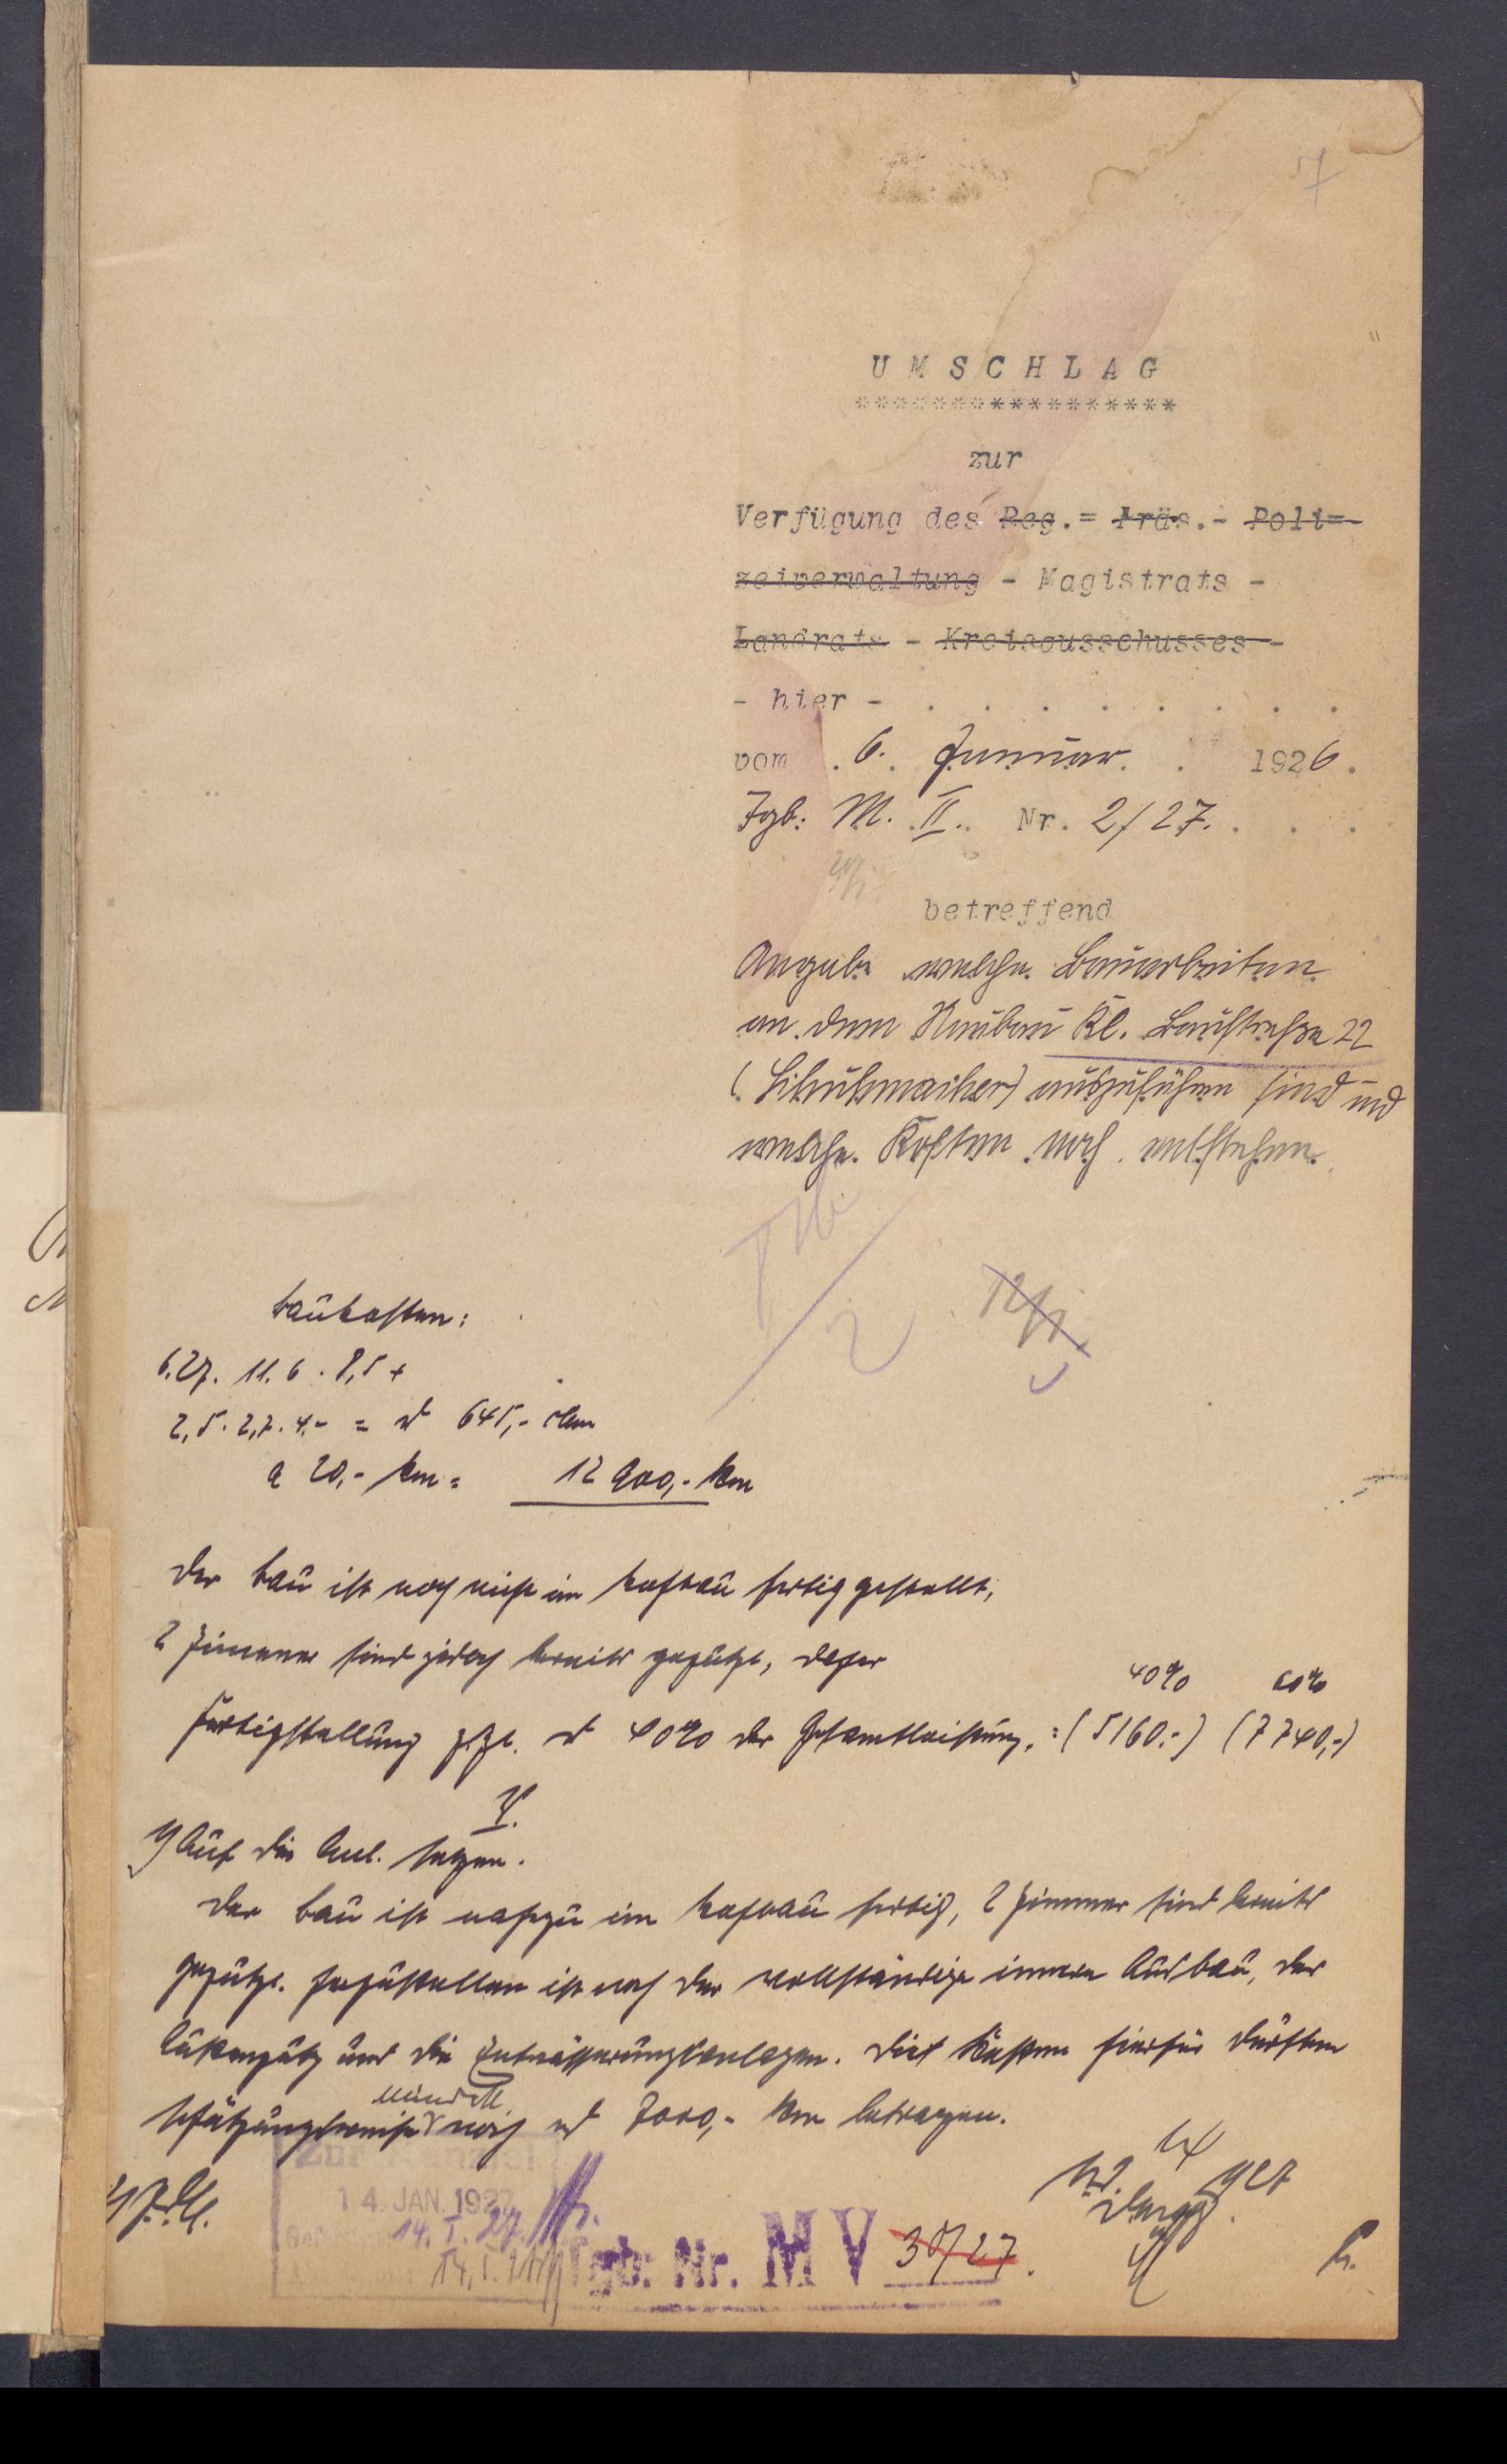 U M S C H L A G
*****************
zur
Verfügung des Reg.= Präs.- Poli=
zeiverwaltung - Magistrats -
Landrats - Kreisausschusses -
- hier - . . . . . . . .
vom . 6. Januar. . 1926.
Tgb: M. II. Nr. 2/27. . . .
betreffend
Angabe welche Bauarbeiten
an dem Neubau Kl. Baustraße 22
(Schuhmacher) auszuführen sind und
welche Kosten noch entstehen.
12/1.
Baukosten:
6.27. 11.6 . 8,5 +
2,5. 2,7. 4,- = rd 645,- cbm
a 20,- Rm = 12 900,- Rm
Der Bau ist noch nicht im Rohbau fertiggestellt,
2 Zimmer sind jedoch bereits geputzt, daher
40% 60%
Fertigstellung z.Zt. rd 40% der Gesamtleistung. = (5160,-) (7740,-)
V.
1) Auf die Anl. setzen.
Der Bau ist nahezu im Rohbau fertig, 2 Zimmer sind bereits
geputzt. Herzustellen ist noch der vollständige innere Ausbau, der
Außenputz und die Entwässerungsanlagen. Die Kosten hierfür dürften
mindest.
schätzungsweise noch rd 7000,- Rm betragen.
Zur Kanzlei
14. JAN. 1927
14. I. 27.
Tgb. Nr. M V 30/27.